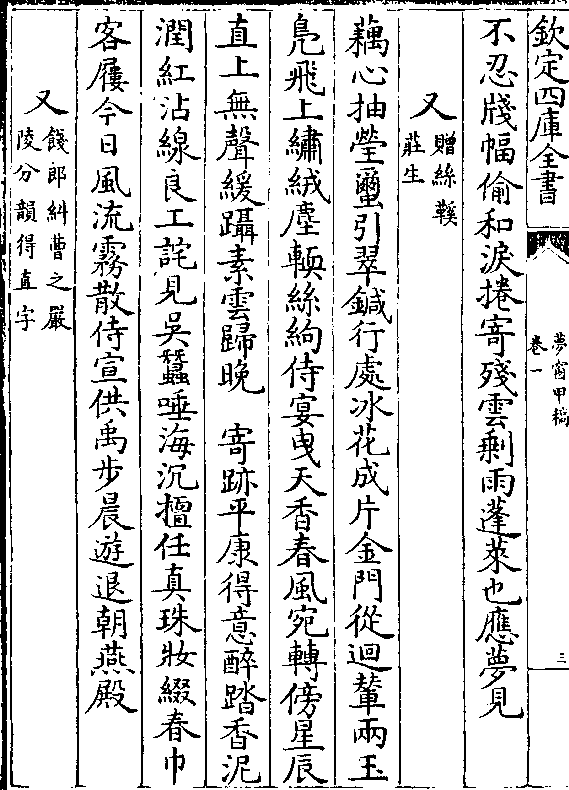 欽定四庫全書
夢窗甲稿
卷一
三
不忍牋幅偷和淚捲寄殘雲剩雨蓬萊也應夢見
又
贈絲鞵
莊生
藕心抽瑩繭引翠鍼行處冰花成片金門從迴輦兩玉
鳬飛上繡絨塵輭絲絇侍宴曳天香春風宛轉傍星辰
直上無聲緩躡素雲歸晚　寄跡平康得意醉踏香泥
潤紅沾線良工詫見吳蠶唾海沉檀任真珠妝綴春巾
客屨今日風流霧散侍宣供禹步晨遊退朝燕殿
又
餞郎糾曹之嚴
陵分韻得直字